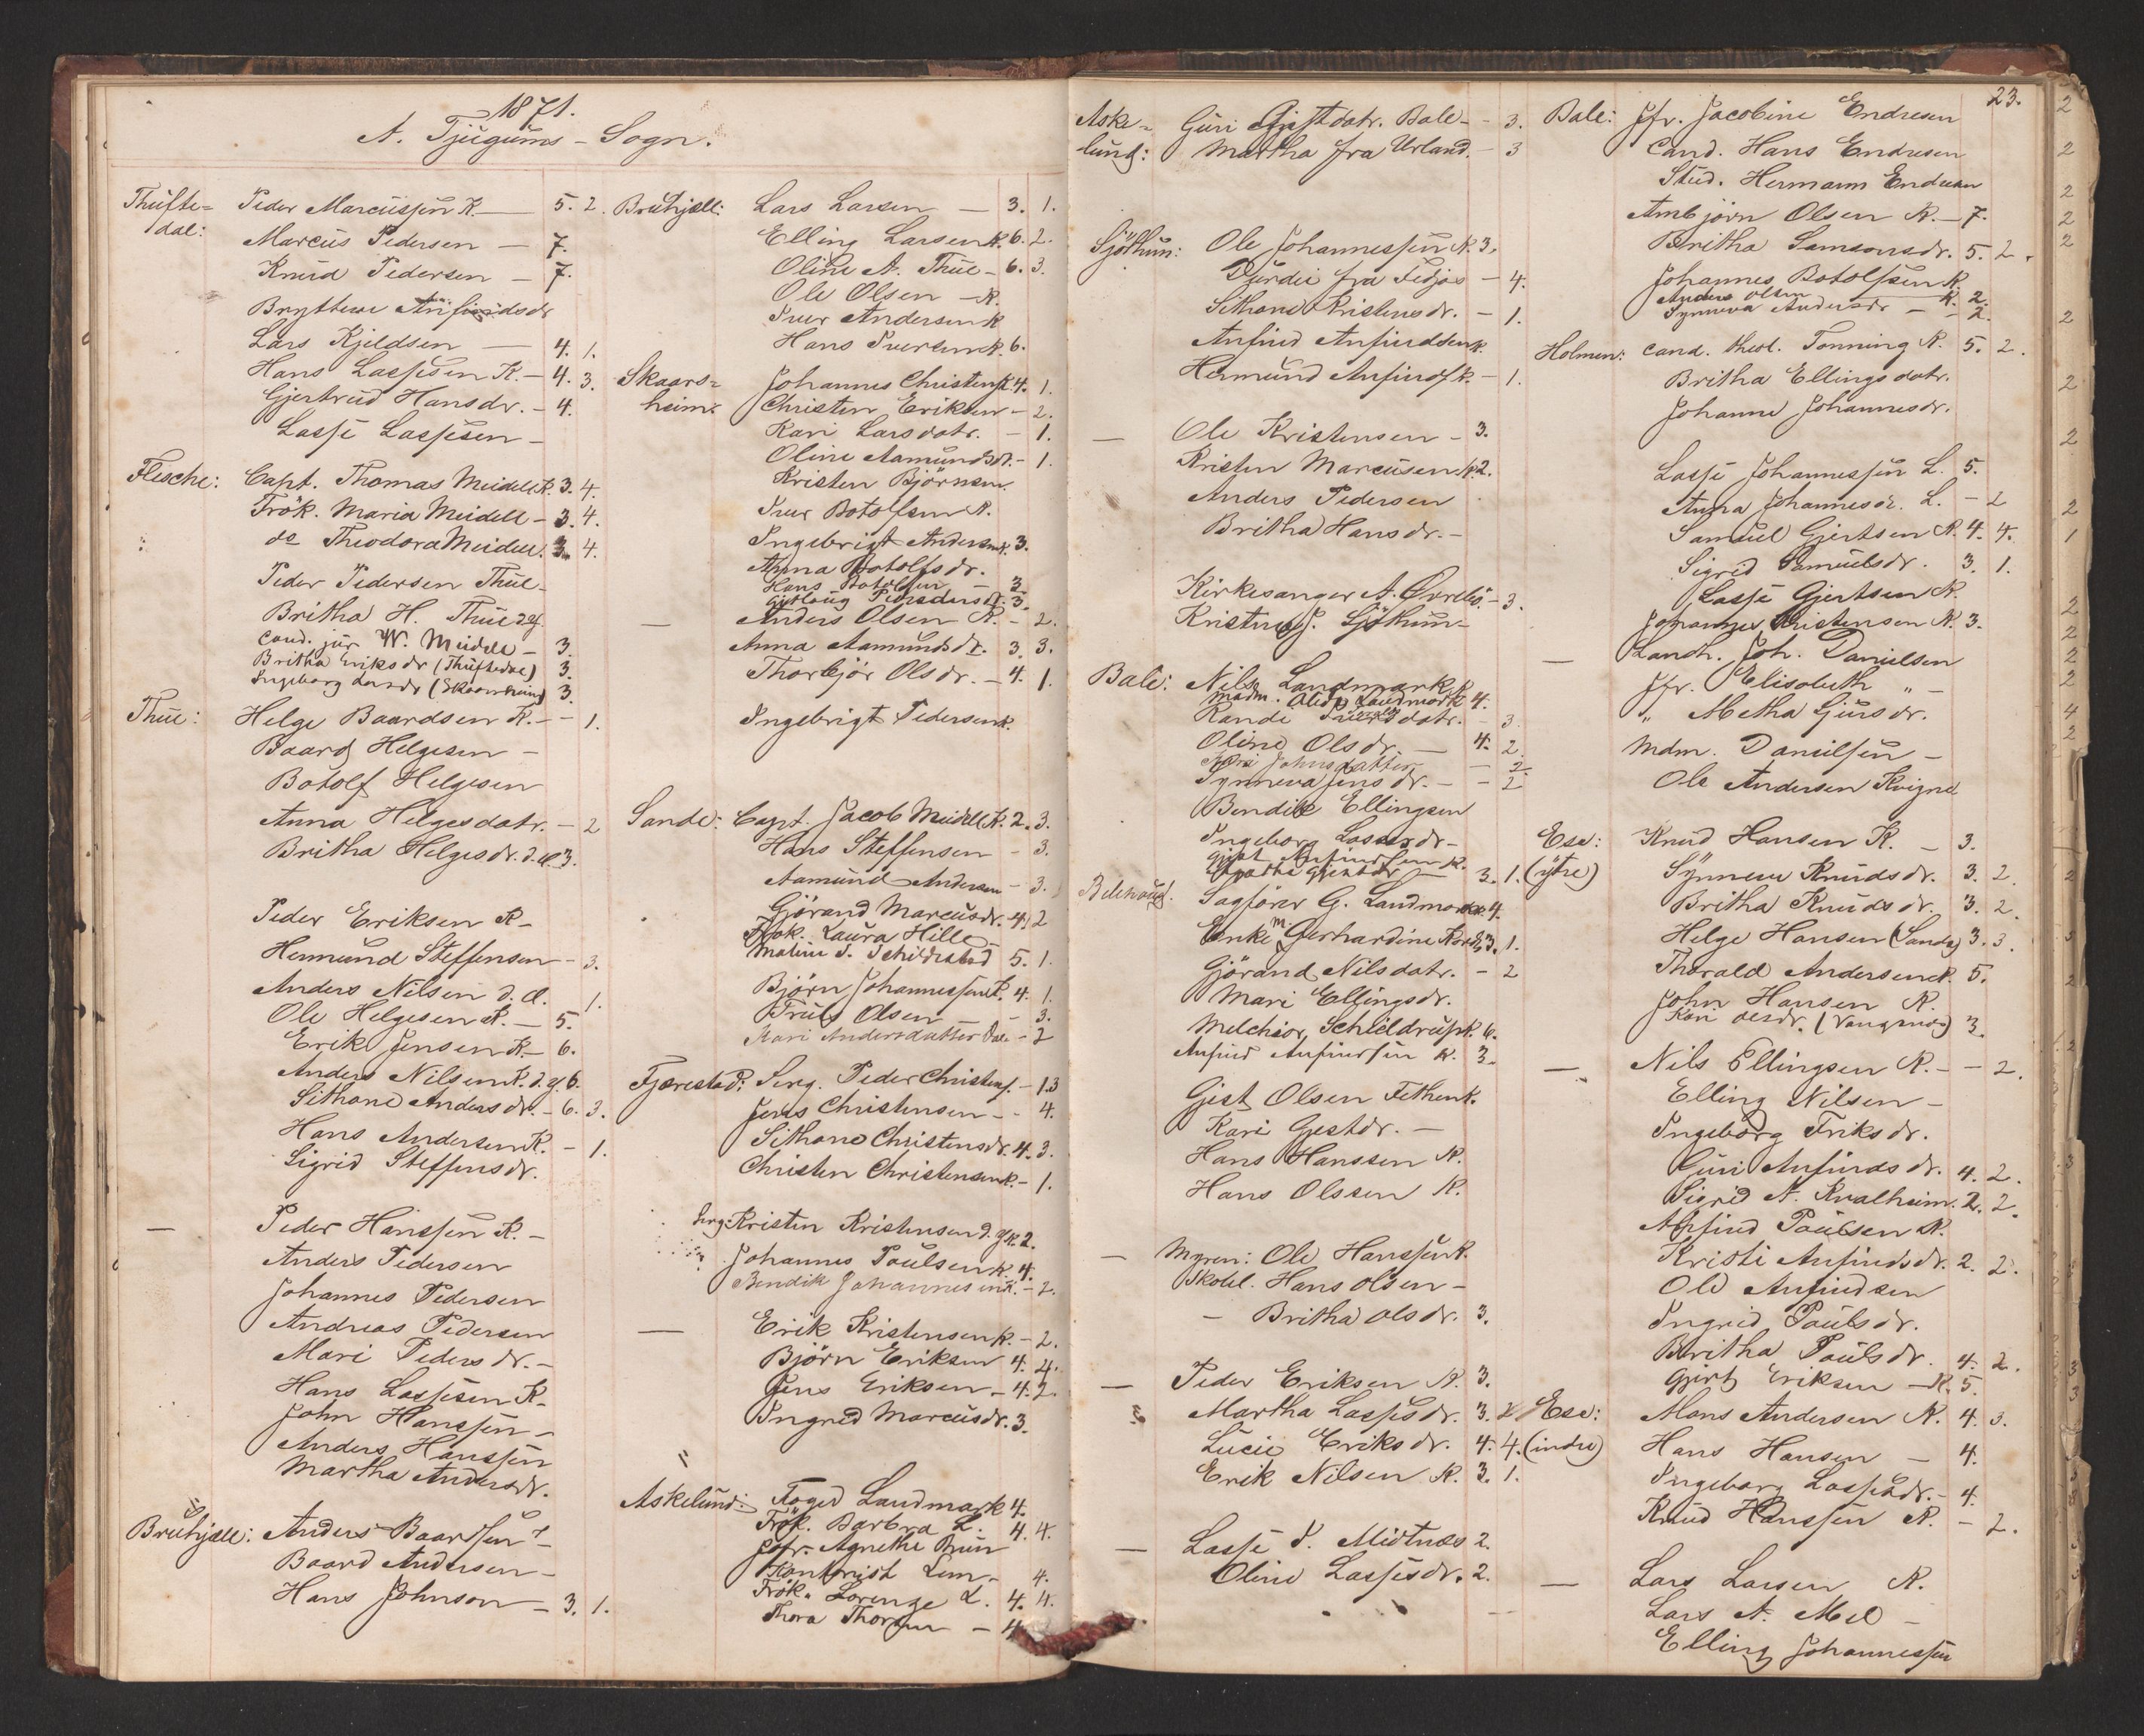 1871.
A. Tjugums - Sogn.
Thufte=
dal:
Peder Marcussen K. — 5. 2.
Marcus Pedersen — 7.
Knud Pedersen — 7.
Brytteve Anfindsdr
Lars Kjeldsen — 4. 1.
Hans Lassesen K. - 4. 3.
Gjertrud Hansdr. - 4.
Lasse Lassesen -
Flesche: Capt. Thomas Meidell K. 3. 4.
Frök. Maria Meidell - 3. 4.
do Theodora Meidell. 3. 4.
Peder Pedersen Thue -
Britha H. Thue d.y.
Cand. jur W. Meidell - 3.
Britha Eriksdr (Thuftedal) 3.
Ingeborg Larsdr (Skaarsheim) 3
Thue: Helge Baardsen K. - - 1.
Baard Helgesen -
Botolf Helgesen
Anna Helgesdatr. - 2
Britha Helgesdr. d. æ. 3.
Peder Eriksen K -
Hermund Steffensen - 3.
Anders Nilsen d. æ. 1.
Ole Helgesen K. — 5.
Erik Jensen K. - 6.
Anders Nilsen K. d. y. 6.
Sithane Andersdr. - 6. 3.
Hans Andersen K. - 1.
Sigrid Steffensdr.
— Peder Hanssen K. -
Anders Pedersen
Johannes Pedersen
Andreas Pedersen
Mari Pedersdr. -
Hans Lassesen K -
John Hanssen -
Anders Hanssen
Martha Andersdr.
Bruhjæll: Anders Baardsen -
Baard Andersen -
Hans Johnson - 3. 1.
Bruhjæll: Lars Larsen — 3. 1.
Elling Larsen K. 6. 2.
Oline A. Thue - 6. 3.
Ole Olsen - K.
Iver Andersen K
Hans Iversen K. 6.
Skaars=
heim: Johannes Christens. K. 4. 1.
Christen Eriksen - 2.
Kari Larsdatr. - 1.
Oline Aamundsdr. - 1.
Kristen Björnsen.
Iver Botolfsen K.
Ingebrigt Andersen K. 3.
Anna Botolfsdr.
Hans Botolfsen — 3
Gjertoug Pedersdr 3.
— Anders Olsen K. - 2.
Anna Aamundsdr. 3. 3.
Thorbjör Olsdr. - 4. 1.
Ingebrigt Pedersen K.
Sande: Capt. Jacob Meidell K. 2. 3.
Hans Steffensen - 3.
Aamund Andersen - 3.
Gjörand Marcusdr. 4. 2
Frök. Laura Hille -
Maline S. Schildrabed 5. 1.
Björn Johannessen K. 4. 1.
Truls Olsen - 3.
Kari Andersdatter Dale - 2
Fjærestad: Serg. Peder Christens. - 1. 3
Jens Christensen - - 4.
Sithane Christensdr. 4. 3.
Christen Christensen K. - 1.
Serg: Kristen Kristensen d. y. K. 2.
Johannes Poulsen K. 4.
Bendik Johannesen K. - 2.
— Erik Kristensen K. - 2.
Björn Eriksen 4. 4.
Jens Eriksen - 4. 2.
Ingred Marcusdr. 3.
Askelund: Foged Landmark 4.
Frök. Barbra L. 4. 4.
Jofr. Agnethe Brun
Kontorist Lem - 4.
Frök. Lorenze L. 4. 4.
Thora Thorsen - 4
23.
Aske=
lund: Guri Gjestdatr. Bale - - 3.
Martha fra Urland. - 3
Sjöthun: Ole Johannessen K. 3.
Durdei fra Fedjos - 4.
Sithane Kristensdr. - 1.
Anfind Anfindsen K.
Hermund Anfinds. K. - 1.
— Ole Kristensen - 3.
Kristen Marcusen K. 2.
Anders Pedersen
Britha Hansdr. -
Kirkesanger A. Övrebö. - 3.
Kristine J. Sjöthun -
Bale: Nils Landmark K
Madm. Alida Landmark 4.
Rande datr. - 3.
Oline Olsdr. — 4. 2.
Johnsdatter — 2
Synneva Jensdr. - - 2
Bendik Ellingsen
Ingeborg Lassesdr -
Gjest Anfindsen K.
Martha Gjestdr — 3. 1.
Belehaug. Sagförer G. Landmark 4.
Enke m. Gerhardine 3. 1.
Gjörand Nilsdatr. - 2
Mari Ellingsdr.
Melchior Schieldrup K. 6.
Anfind Anfindsen K. 3.
Gjest Olsen Fethen K.
Kari Gjestdr. -
Hans Hanssen K.
Hans Olssen K.
— Myren: Ole Hanssen K.
Skolel. Hans Olsen -
- Britha Olsdr. 3.
— Peder Eriksen K. 3.
Martha Lassesdr. 3. 2
Lucie Eriksdr. 4. 4.
Erik Nilsen K. 3. 1.
— Lasse P. Midtnæs 2.
Oline Lassesdr. 2.
Bale: Jfr. Jacobine Endresen
Cand. Hans Endresen
Stud. Hermann Endresen
Ambjörn Olsen K. - 7.
Britha Samsonsdr. 5. 2.
Johannes Botolfsen K.
Anders Olsen — K. 2.
Synneva Andersdr - - 2.
Holmen: Cand. theol. Tonning K. 5. 2.
Britha Ellingsdatr.
Johanne Johannesdr.
Lasse Johannessen L. 5.
Anna Johannesdr. L. - 2
Samuel Gjertsen K. 4. 4.
Sigrid Samuelsdr. 3. 1.
Lasse Gjertsen K.
Johannes Kristensen K. 3.
— Landh. Joh. Danielsen
Jfr. Elisabeth " -
" Metha Gjursdr.
Mdm. Danielsen -
Ole Andersen Kvigne
Ese:
(ytre) Knud Hansen K. - 3.
Synneve Knudsdr. 3. 2.
Britha Knudsdr. 3. 2.
Helge Hansen (Sande) 3. 3.
Thorald Andersen K. 5.
John Hansen K.
Kari Olsdr. (Vangsnæs) 3.
— Nils Ellingsen K. - - 2.
Elling Nilsen -
Ingeborg Eriksdr.
Guri Anfindsdr. 4. 2.
Sigrid N. Kvalheim. 2. 2.
Anfind Poulsen K.
Kristi Anfindsdr. 2. 2.
Ole Anfindsen
Ingrid Poulsdr.
Britha Poulsdr. 4. 2.
Gjert Eriksen - K. 5.
Ese:
(indre) Mons Andersen K. 4. 3.
Hans Hansen - 4.
Ingeborg Lassesdr. - 4.
Knud Hanssen K. - 2.
— Lars Larsen K.
Lars A. Mel -
Elling Johannessen